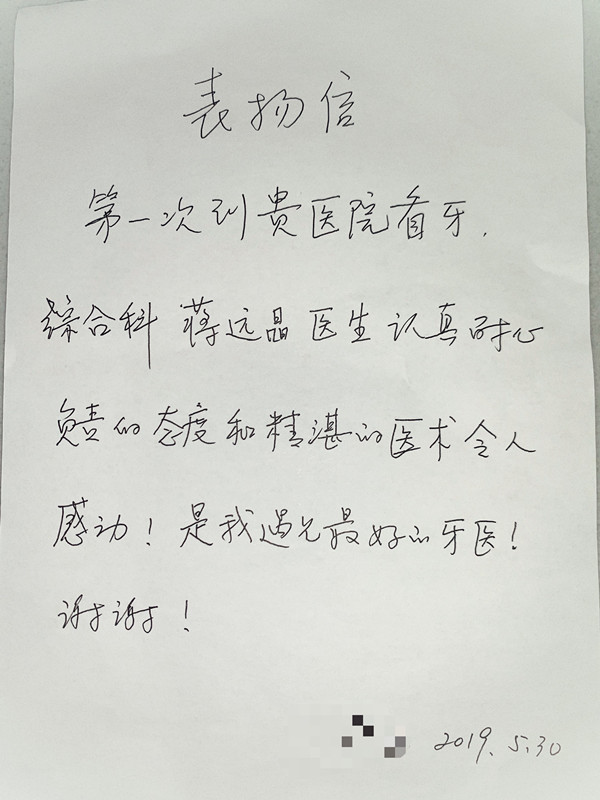 表扬信
第一次到贵医院看牙,
综合科 蒋远晶 医生认真耐心
负责的态度和精湛的医术令人
感动！是我遇见最好的牙医！
谢谢！
2019.5.30